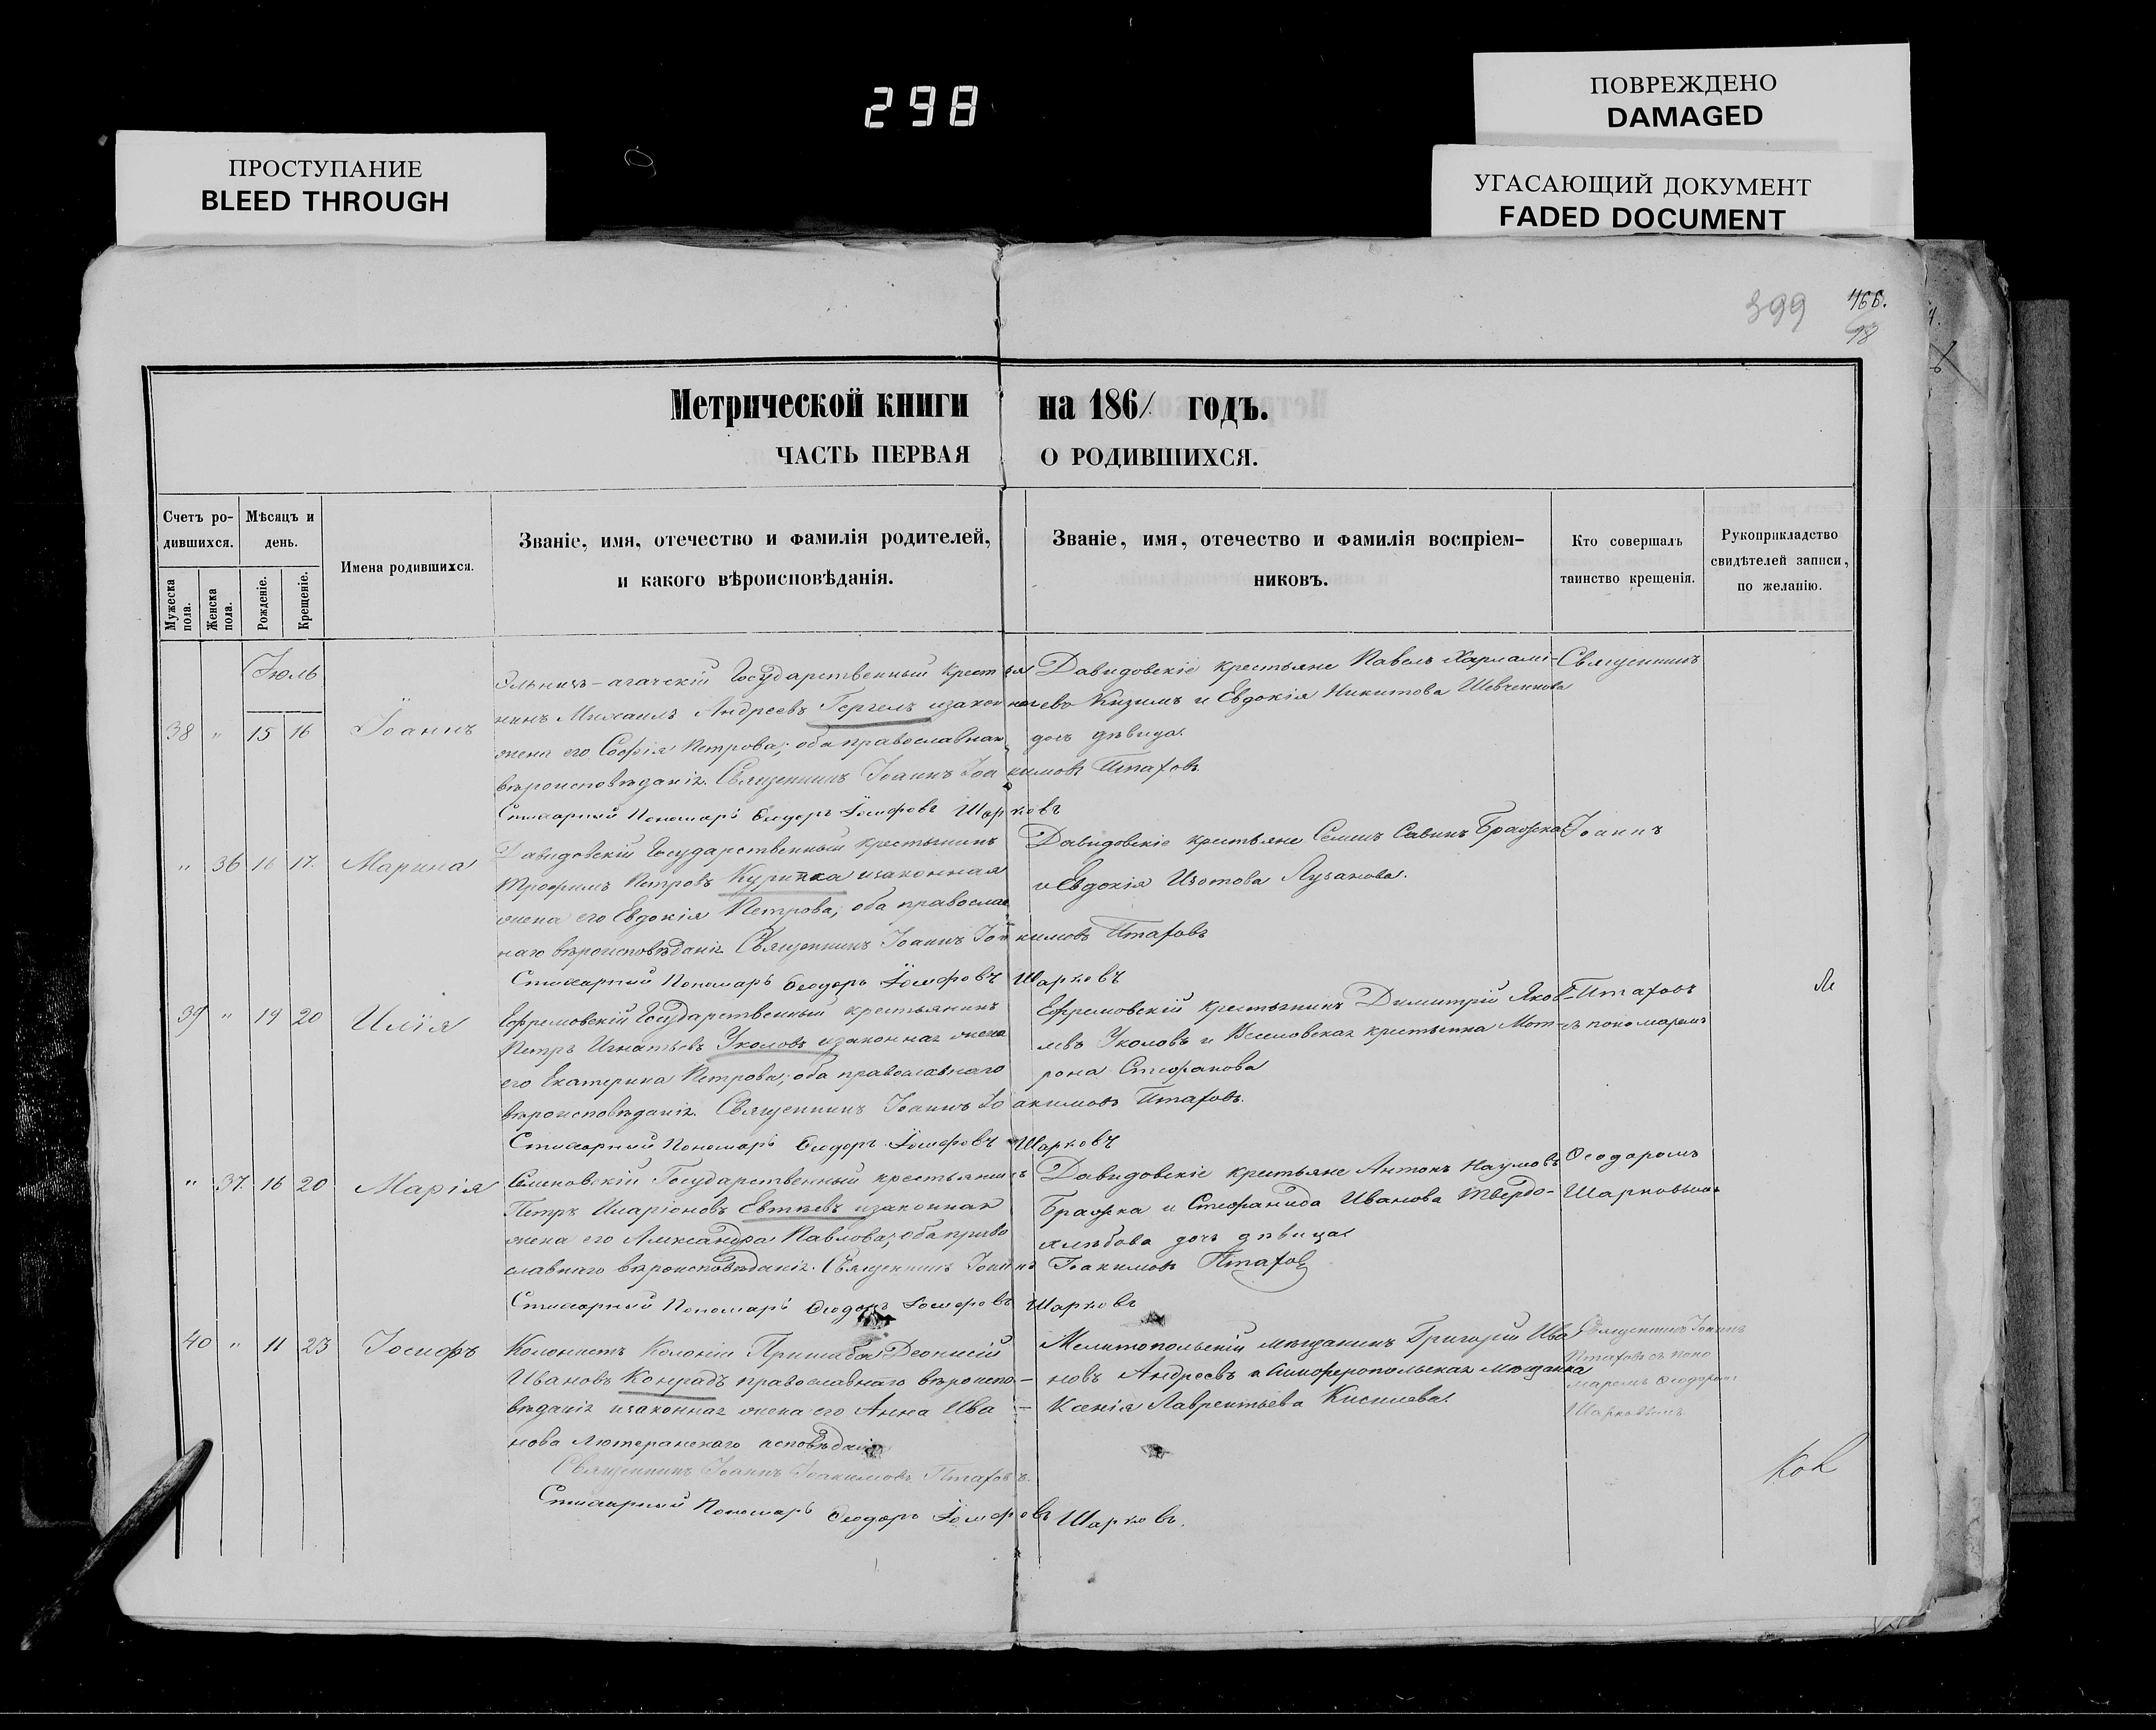 ПОВРЕЖДЕНО
DAMAGED
298
ПРОСТУПАНИЕ
BLEED THROUGH
УГАСАЮЩИЙ ДОКУМЕНТ
FADED DOCUMENT
399 466.
Метрической книги на 1861 годъ.
ЧАСТЬ ПЕРВАЯ О РОДИВШИХСЯ.
Счетъ ро-
дившихся.
Мужеска пола.
Женска пола.
Мѣсяцъ и
день.
Рожденіе.
Крещеніе.
Имена родившихся.
Званіе, имя, отечество и фамилія родителей,
и какого вѣроисповѣданія.
Званіе, имя, отечество и фамилія воспріем-
никовъ.
Кто совершалъ
таинство крещенія.
Рукоприкладство
свидѣтелей записи,
по желанію.
Іюль
38 " 15 16 Іоаннъ
агачскій Государственный крестья
нинъ Михаилъ Андреевъ Гергелъ изакон ная
жена его Софія Петрова; оба православнаго
вѣроисповѣданія. Священникъ Іоаннъ Іоакимовъ Птаховъ.
Стихарный Пономарь Ѳеодоръ Іосифовъ Шарковъ
Давидовскіе крестьяне Павелъ Харлампі-
евъ Кизимъ и Евдокія Никитова Шевченкова
дочь дѣвица.
Священникъ
" 36 16 17. Марина
Давидовскій Государственный крестьянинъ
Трофимъ Петровъ Куринка изаконная
жена его Евдокія Петрова; оба православ
наго вѣроисповѣданія Священникъ Іоаннъ Іоакимовъ Птаховъ
Стихарный Пономарь Ѳеодоръ Іосифовъ Шарковъ
Давидовскіе крестьяне Семенъ Савинъ Бражка
и Евдокія Изотова Лузанова.
Іоаннъ
39 " 19 20 Илія
Ефремовскій Государственный крестьянинъ
Петръ Игнатьевъ Уколовъ изаконная жена
его Екатерина Петрова; оба православнаго
вѣроисповѣданія. Священникъ Іоаннъ Іоакимовъ Птаховъ.
Стихарный Пономарь Ѳеодоръ Іосифовъ Шарковъ
Ефремовскій крестьянинъ Димитрій Яков-
левъ Уколовъ и крестьянка Мот-
рона Стефанова
Птаховъ
съ пономаремъ
" 37. 16 20 Марія
Семеновскій Государственный крестьянинъ
Петръ Иларіоновъ Евтѣевъ изаконная
жена его Александра Павлова; оба право
славнаго вѣроисповѣданія. Священникъ Іоаннъ Іоакимовъ Птаховъ
Стихарный Пономарь Ѳеодоръ Іосифовъ Шарковъ
Давидовскіе крестьяне Антонъ Наумовъ
Бражка и Стефанида Иванова Твердо-
хлѣбова дочь дѣвица
Ѳеодоромъ
Шарковымъ
40 " 11 23 Іосифъ
Колонистъ Колоніи Пришиба Деонисій
Ивановъ Конрадъ православнаго вѣроиспо-
вѣданія изаконная жена его Анна Ива-
нова Лютеранскаго исповѣданія
Священникъ Іоаннъ Іоакимовъ Птаховъ.
Стихарный Пономарь Ѳеодоръ Іосифовъ Шарковъ.
Мелитопольскій мѣщанинъ Григорій Ива
новъ Андреевъ и Симферопольская мѣщанка
Ксенія Лаврентьева Кисилева.
Священникъ Іоаннъ
Птаховъ съ поно
маремъ Ѳеодоромъ
Шарковымъ